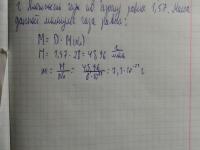 газа по азоту равна 1,57. Масса
данной молекулы газа равна:
M = D · M(N₂)
M = 1,57 · 28 = 43,96 г/моль
m = M/Nₐ = 43,96/6·10²³ = 7,3 · 10⁻²³ г